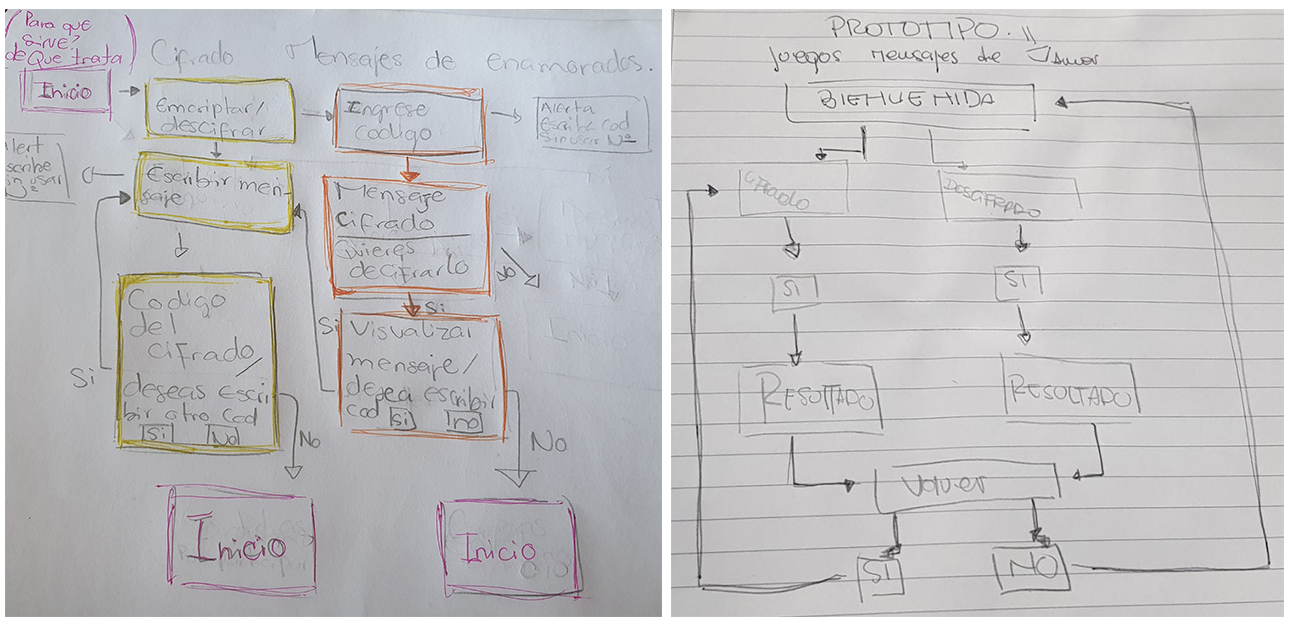 Para que
sirve?
de Que trata
Cifrado Mensajes de enamorados.
Inicio
Emcriptar/
descifrar
Ingrese
codigo
Alerta
escribe cod
Sin usar Nº
Escribir men-
saje
Mensaje
Cifrado
Quieres
decifrarlo
NO
Si
Codigo
del
Cifrado/
deseas Escri
bir otro Cod
Si No
Si
No
Visualizar
mensaje/
desea escribir
cod Si no
Si
No
Inicio
Inicio
PROTOTIPO. II
Juegos mensajes de Amor
BIENVENIDA
DESCIFRADO
SI
SI
RESULTADO
RESULTADO
Volver
SI
NO